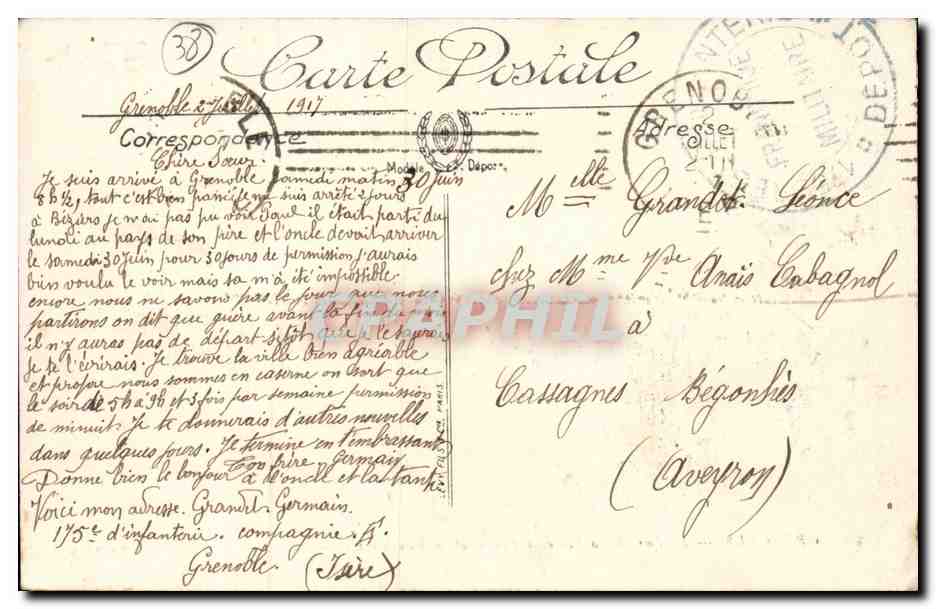 38
Carte Postale
Grenoble 2 Juillet 1917
Correspondance
Adresse
Modèle Déposé
Chère Sœur.
Je suis arrivé à Grenoble samedi matin 30 Juin
8h ½, tout c'est bien passé je me suis arrêté 2 jours
à Béziers je n'ai pas pu voir il était parti du
lundi au pays de son père et l'oncle devait arriver
le samedi 30 Juin pour 30 jours de permission j'aurais
bien voulu le voir mais sa m'a été impossible
encore nous ne savons pas le jour que nous
partirons on dit que guère avant la fin du mois
il n'y auras pas de départ sitôt que je le saurais
je te l'écrirais. Je trouve la ville bien agréable
et propre nous sommes en caserne on sort que
le soir de 5h à 9h et 3 fois par semaine permission
de minuit. Je te donnerais d'autres nouvelles
dans quelques jours. Je termine en t'embrassant
Ton frère Germain
Donne bien le bonjour à l'oncle et la tante
Voici mon adresse. Grandet Germain.
175e d'infanterie. compagnie
Grenoble. (Isère)
Melle Grandet Léonce
chez Mme Vve Anaïs Cabagnol
à
Cassagnes Bégonhès
(Aveyron)
GRENOBLE
DÉPOT
EPAPHIL